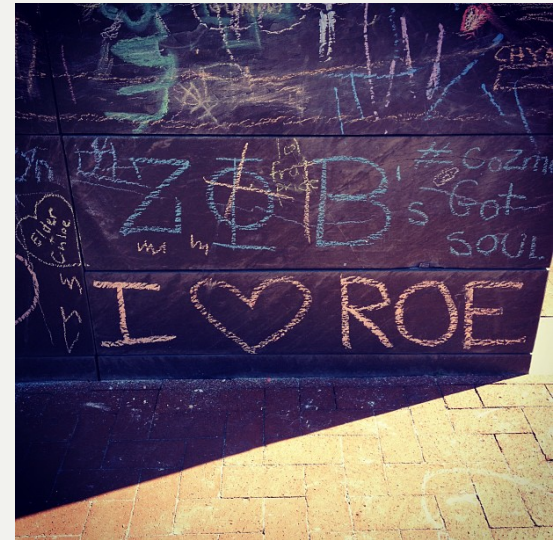 CHY'S
ZΦB's
#Cozm
Got
SOUL
Elder
+
Chloe
I ♥ ROE